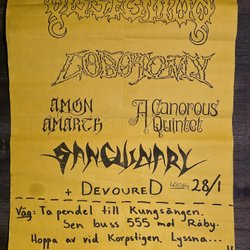 LOBOTOMY
AMON AMARTH
A Canorous Quintet
SANGUINARY
+ DEVOURED LÖRDAG 28/1
Väg: Ta pendel till Kungsängen.
Sen buss 555 mot Råby.
Hoppa av vid Korpstigen. Lyssna...